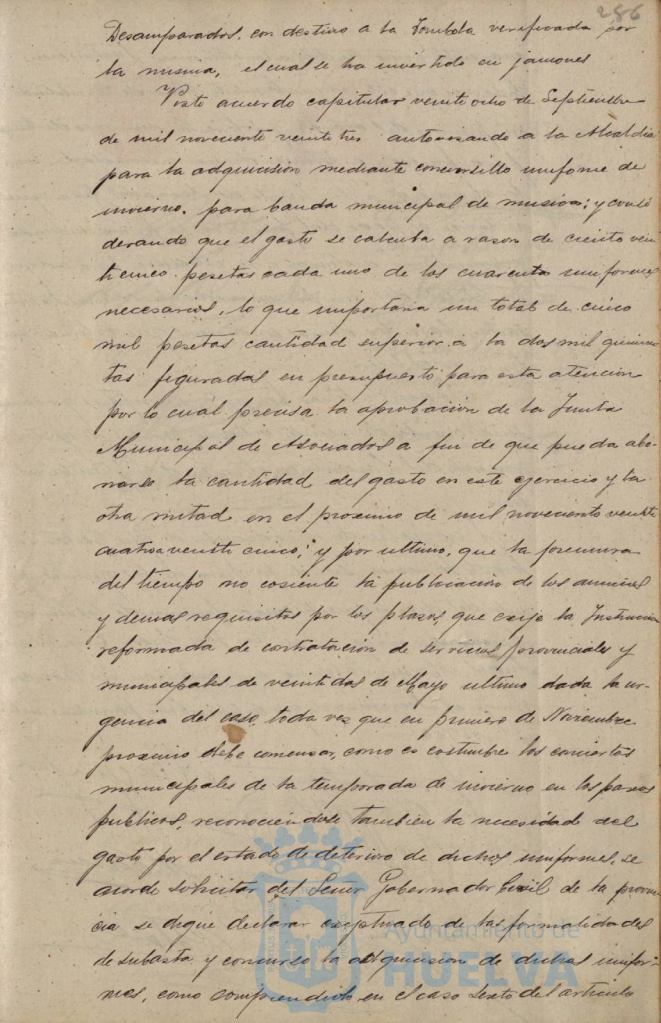 286
Desamparados, con destino a la Tombola verificada por
la misma, el cual se ha invertido en jamones
Visto acuerdo capitular veintiocho de Septiembre
de mil noveciento veintitres autorisando a la Alcaldia
para la adquicision mediante concursillo uniforme de
invierno, para banda municipal de musica; y consi
derando que el gasto se calcula a rason de ciento vein
ticinco pesetas cada uno de los cuarenta uniformes
necesarios, lo que importaria un total de cinco
mil pesetas cantidad superior a la dos mil quinien
tas figuradas en presupuesto para esta atencion
por lo cual precisa la aprobacion de la Junta
Municipal de Asociados a fin de que pueda abo-
narse la cantidad del gasto en este ejercicio y la
otra mitad en el proximo de mil noveciento veinte
cuatro a veinte cinco; y por ultimo, que la premura
del tiempo no cosiente la publicacion de los anuncios
y demas requisitos por los plasos que exije la Instruccion
reformada de contratacion de servicios provinciales y
municipales de veintidos de Mayo ultimo dada la ur-
gencia del caso, toda ves que en primero de Noviembre
proximo debe comensar, como es costumbre los conciertos
municipales de la temporada de invierno en los paseos
publicos, reconociendose tambien la necesidad del
gasto por el estado de deterioro de dichos uniformes, se
acorde solicitar del Señor Gobernador Civil de la provin
cia se digne declarar exseptuado de las formalidades
de subasta y concurso la adquicision de dichos unifor-
mes, como comprendido en el caso sexto del articulo
Ayuntamiento de
HUELVA